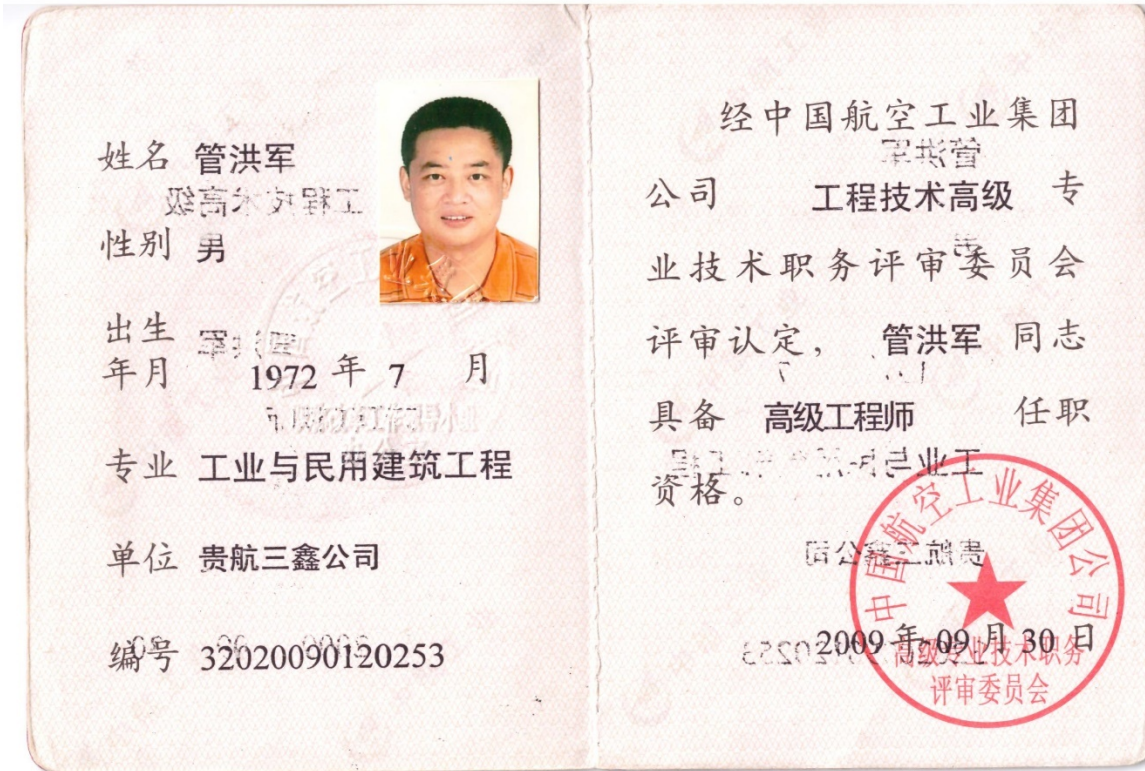 姓名 管洪军
性别 男
出生
年月 1972 年 7 月
专业 工业与民用建筑工程
单位 贵航三鑫公司
编号 32020090120253
经中国航空工业集团
公司 工程技术高级 专
业技术职务评审委员会
评审认定， 管洪军 同志
具备 高级工程师 任职
资格。
中国航空工业集团公司
2009 年 09 月 30 日
高级专业技术职务
评审委员会